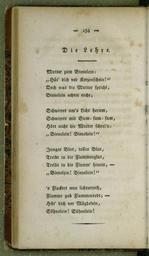 — 154 —
Die Lehre.
Mutter zum Bienelein:
„Hüt' dich vor Kerzenschein!“
Doch was die Mutter spricht,
Bienelein achtet nicht;
Schwirret um's Licht herum,
Schwirret mit Sum-sum-sum,
Hört nicht die Mutter schrei'n:
„Bienelein! Bienelein!“
Junges Blut, tolles Blut,
Treibt in die Flammenglut,
Treibt in die Flamm' hinein, —
„Bienelein! Bienelein!“
's flackert nun lichterroth,
Flamme gab Flammentod; —
Hüt' dich vor Mägdelein,
Söhnelein! Söhnelein!